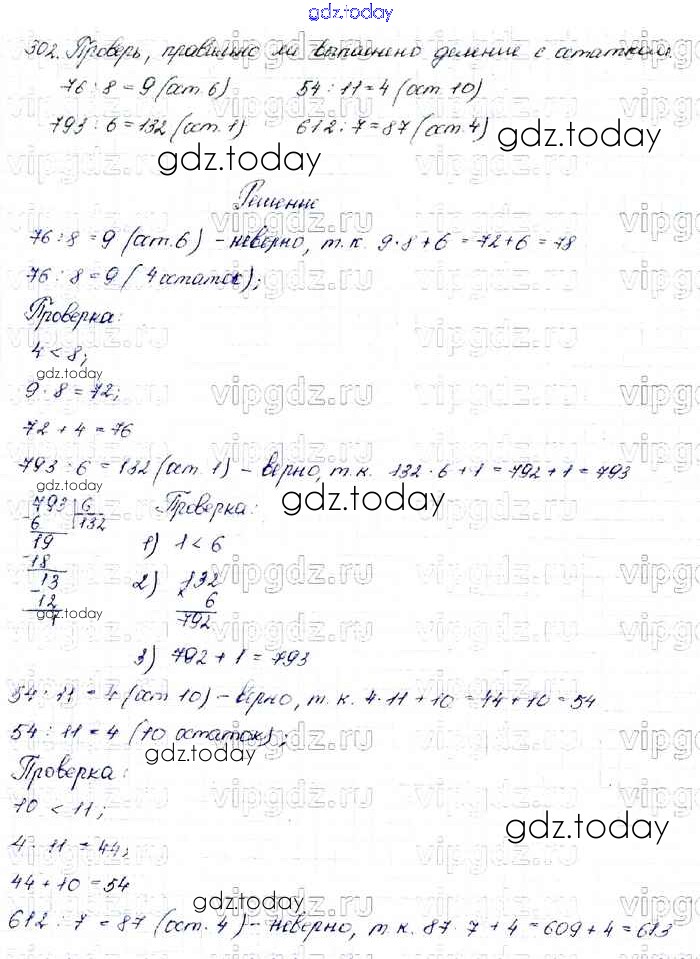 gdz.today
302. Проверь, правильно ли выполнено деление с остатком.
76 : 8 = 9 (ост. 6) 54 : 11 = 4 (ост. 10)
793 : 6 = 132 (ост. 1) 612 : 7 = 87 (ост. 4)
gdz.today gdz.today
Решение
76 : 8 = 9 (ост. 6) - неверно, т.к. 9 · 8 + 6 = 72 + 6 = 78
76 : 8 = 9 (4 остаток);
Проверка:
4 < 8;
gdz.today
9 · 8 = 72;
72 + 4 = 76
793 : 6 = 132 (ост. 1) - верно, т.к. 132 · 6 + 1 = 792 + 1 = 793
gdz.today
793 6 Проверка:
6 132
19 1) 1 < 6
18
13 2) 132
12 6
1 792
gdz.today
3) 792 + 1 = 793
54 : 11 = 4 (ост 10) - верно, т.к. 4 · 11 + 10 = 44 + 10 = 54
54 : 11 = 4 (10 остаток);
gdz.today
Проверка:
10 < 11;
gdz.today
4 · 11 = 44;
44 + 10 = 54
gdz.today
612 : 7 = 87 (ост. 4) - неверно, т.к. 87 · 7 + 4 = 609 + 4 = 613
vipgdz.ru